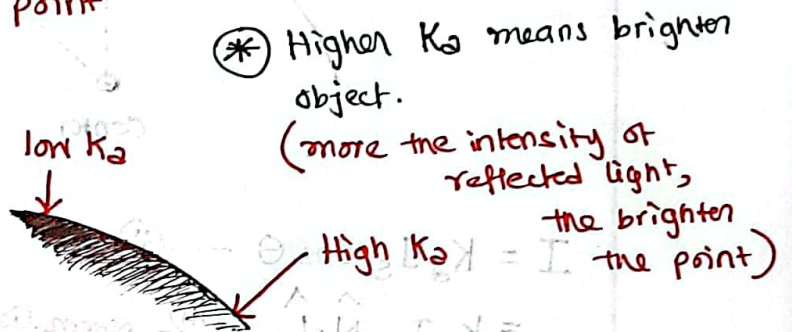 point
* Higher Ka means brighter
object.
(more the intensity of
reflected light,
the brighter
the point)
low Ka
High Ka